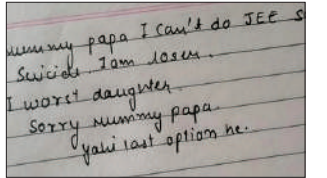 mummy papa I can't do JEE S
Suicide. I am loser.
I worst daughter.
Sorry mummy papa.
yahi last option he.